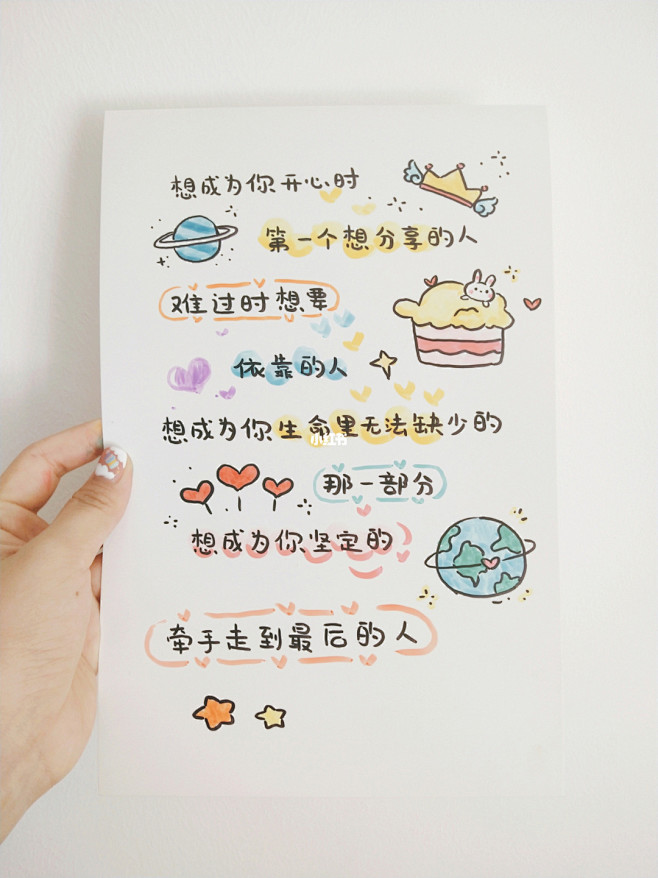 想成为你开心时
第一个想分享的人
难过时想要
依靠的人
想成为你生命里无法缺少的
小红书
那一部分
想成为你坚定的
牵手走到最后的人